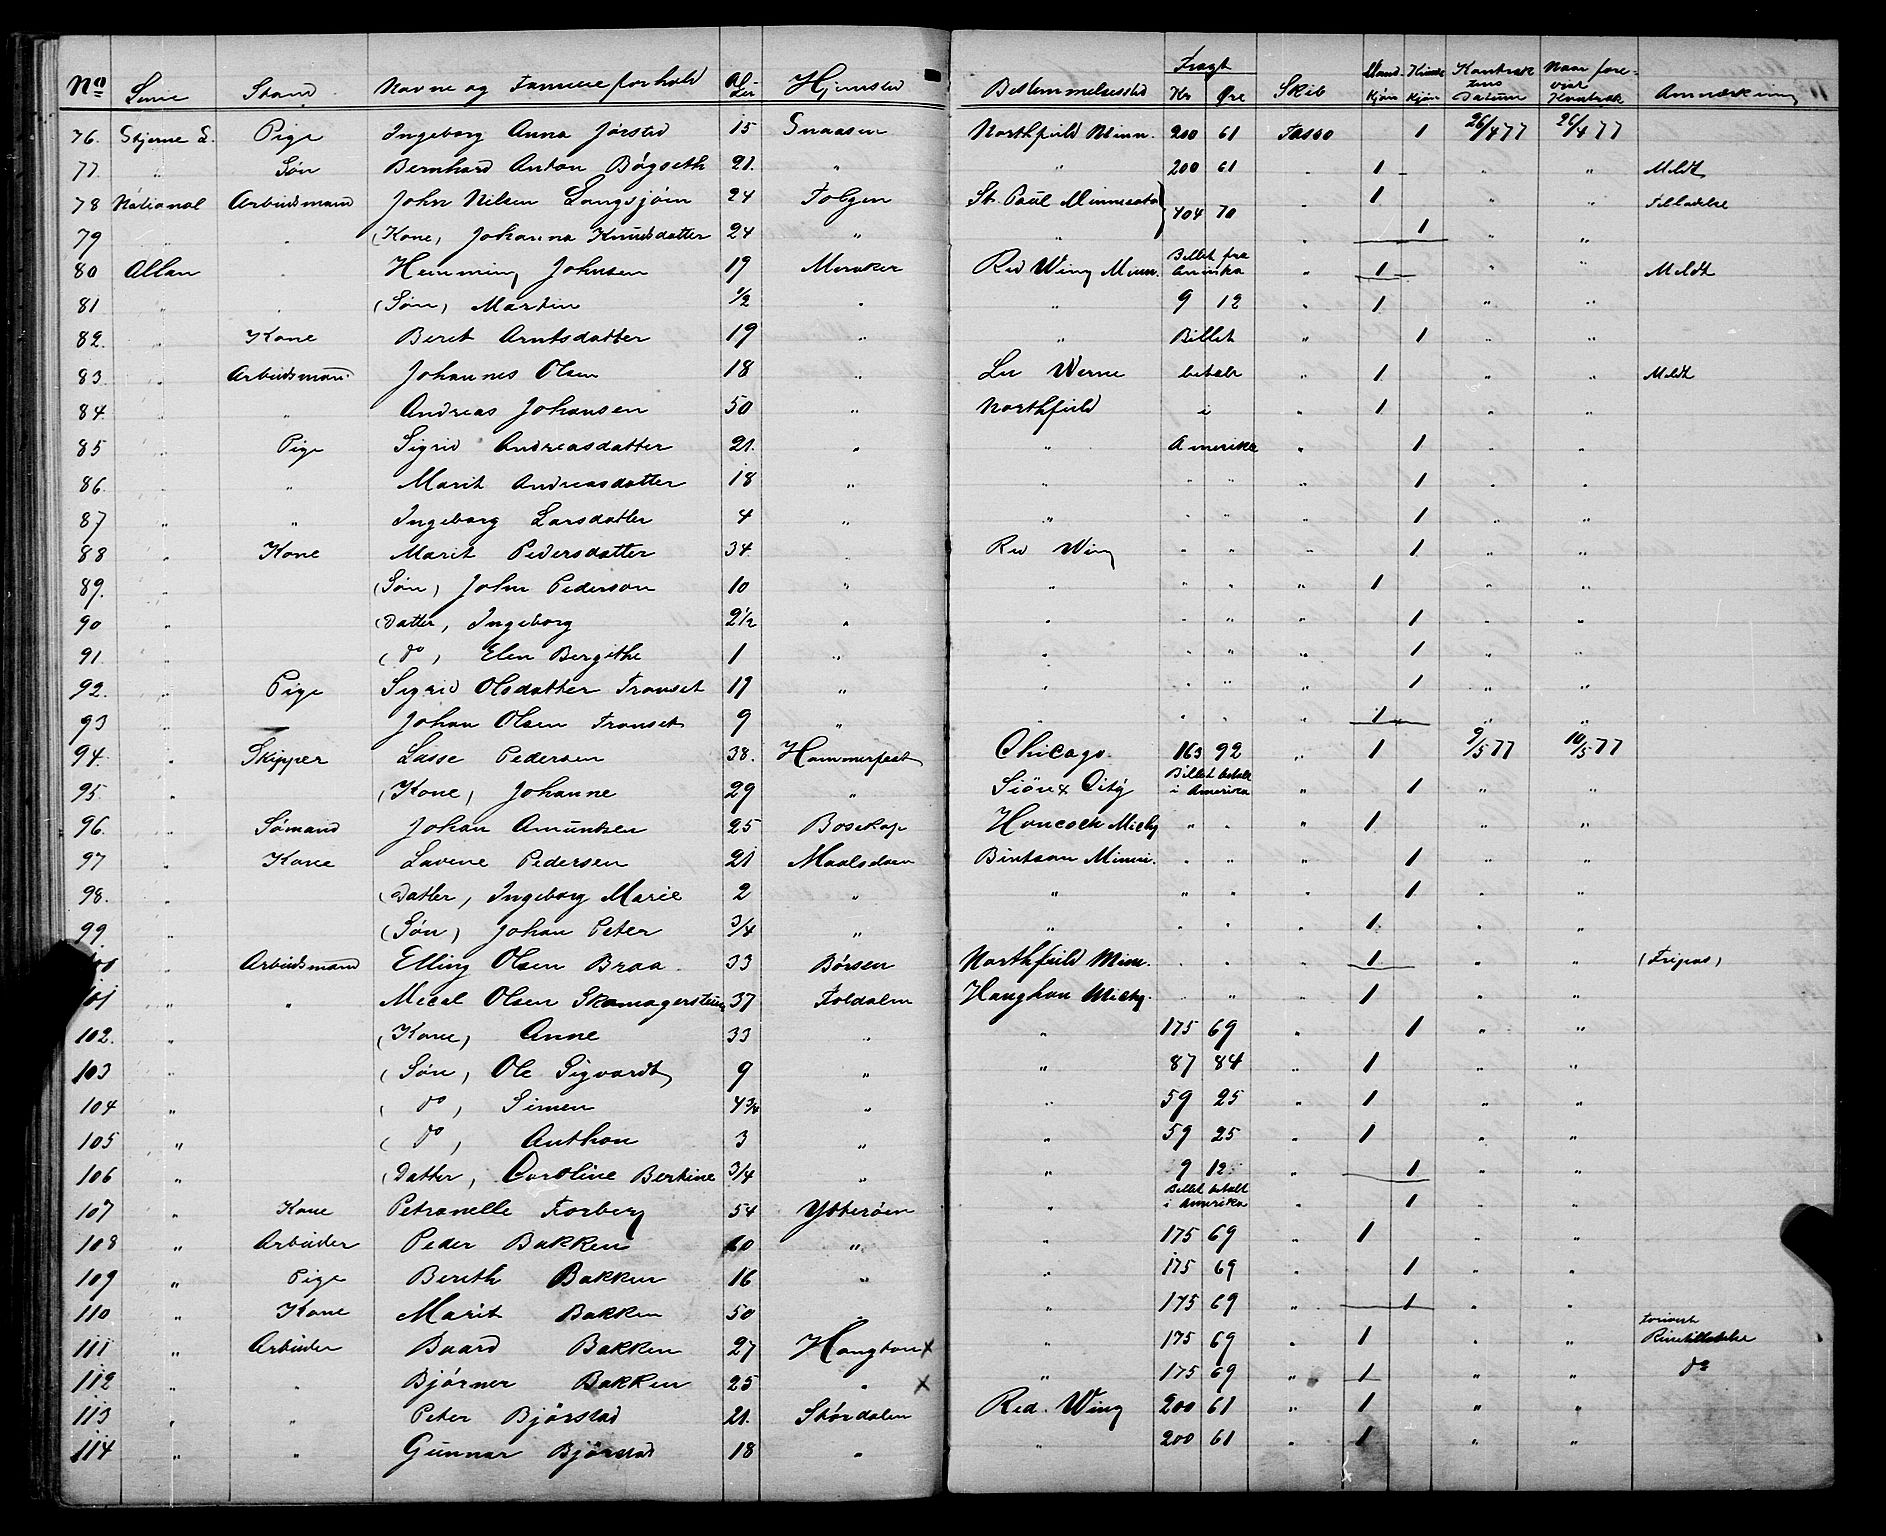 No Linie Stand Navne og Familieforhold Alder Hjemsted Bestemmelsessted Fragt Kr Øre Skib Mandkjøn Kvindekjøn Kontraktens Datum Naar forevist Kontrakt Anmærkning
76. Stjerne L. Pige Ingeborg Anna Jørstad 15 Snaasen Northfield Minn. 200 61 Tasso 1 26/4 77 26/4 77
77 " Søn Bernhard Anton Bøgseth 21. " " 200 61 " 1 " " Meldt
78 National Arbeidsmand John Nilsen Langsjøen 24 Tolgen St. Paul Minnesota 404 70 " 1 " "
79 " " (Kone) Johanna Knudsdatter 24 " " " 1 " "
80 Allan " Hemming Johnsen 19 Meraker Red Wing Minn. Billet fra Amerika " 1 " " Meldt
81 " " (Søn) Martin 1/2 " " 9 12 " 1 " "
82. " Kone Beret Arntsdatter 19 " " Billet " 1 " "
83. " Arbeidsmand Johannes Olsen 18 " betalt " 1 " " Meldt
84. " " Andreas Johansen 50 " Northfield i " 1 " "
85 " Pige Sigrid Andreasdatter 21. " " Amerika " 1 " "
86. " " Marit Andreasdatter 18 " " " " " 1 " "
87 " " Ingeborg Larsdatter 4 " " " " " 1 " "
88 " Kone Marit Pedersdatter 34 " Red Wing " " " 1 " "
89. " (Søn) John Pederson 10 " " " " " 1 " "
90 " (Datter) Ingeborg 2 1/2 " " " " " 1 " "
91 " (do) Elen Bergithe 1 " " " " " 1 " "
92. " Pige Sigrid Olsdatter Fronset 19 " " " " " 1 " "
93 Johan Olsen Fronset 9 " " " " " 1 " "
94. " Skipper Lasse Pedersen 38. Hammerfest Chicago. 163 92 " 1 9/5 77 10/5 77
95. " (Kone) Johanne 29 " Siöux City Billet betalt i Amerika " 1 " "
96. " Sømand Johan Amundsen 25 Bosekop Hancock Michg " " " 1 " "
97 " Kone Lavine Pedersen 21 Maalselven Minn. " " " 1 " "
98. " (Datter) Ingeborg Marie 2 " " " " " 1 " "
99. " (Søn) Johan Peter 3/4 " " " " " 1 " "
100 " Arbeidsmand Elling Olsen Braa. 33 Børsen Northfield Minn. " " " 1 " " (Fripas)
101 " " Olsen 37 Foldalen Haughton Michg. " " " 1 " "
102. " (Kone) Anne 33 " " 175 69 " 1 " "
103 (Søn) Ole Sigvardt 9 " " 87 84 " 1 " "
104 " (do) Simen 4 3/4 " " 59 25 " 1 " "
105 " (do) Anthon 3 " " 59 25 " 1 " "
106 " (Datter) Caroline Berthine 3/4 " " 9 12 " 1 " "
107 " Kone Petronelle Forberg 54 Ytterøen " Billet betalt i Amerika " 1 " "
108 " Arbeider Peder Bakken 60 " " 175 69 " 1 " "
109 " Pige Berith Bakken 16 " " 175 69 " 1 " "
110 " Kone Marit Bakken 50 " " 175 69 " 1 " "
111 " Arbeider Baard Bakken 27 Hangton x " 175 69 " 1 " "
112 " " Bjørner Bakken 25 " x " 175 69 " 1 " " do
113 " " Peter Bjørstad 21. Størdalen Red. Wing 200 61 " 1 " "
114 " " Gunnar Bjørstad 18 " " 200 61 " 1 " "